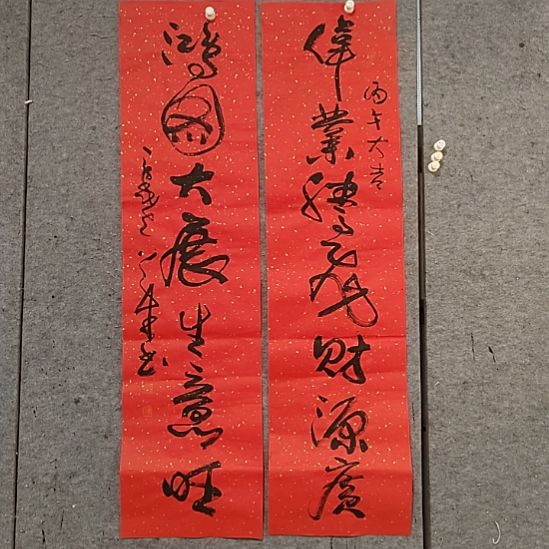 丙午大吉
偉業騰飛財源廣
鴻圖大展生意旺